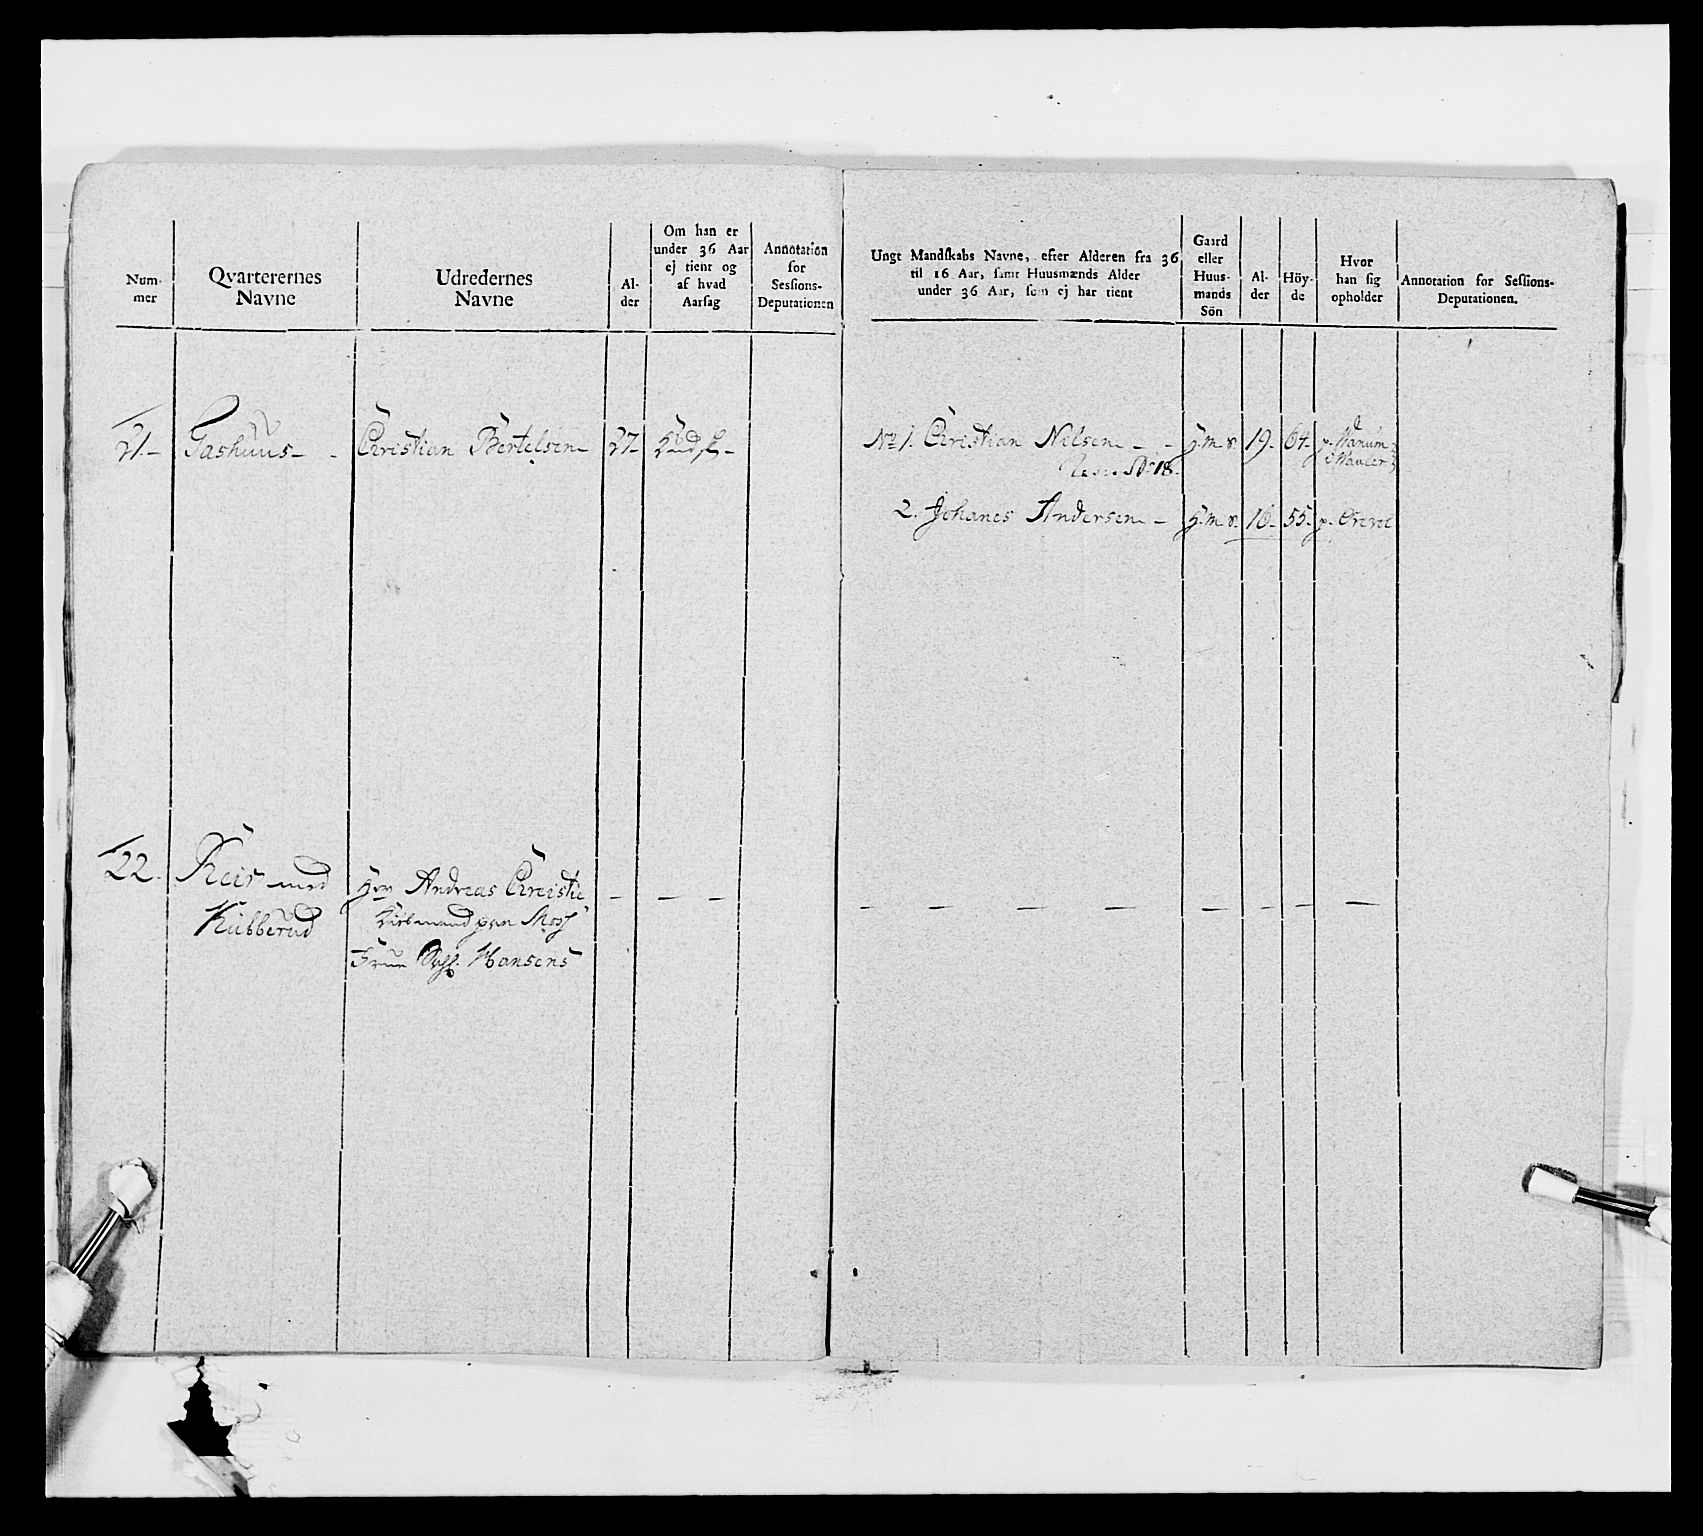 Num-
mer
Qvarterernes
Navne
Udredernes
Navne
Al-
der
Om han er
under 36 Aar
ej tient og
af hvad
Aarsag
Annotation
for
Sessions-
Deputationen
Ungt Mandskabs Navne, efter Alderen fra 36
til 16 Aar, samt Huusmænds Alder
under 36 Aar, som ej har tient
Gaard
eller
Huus-
mands
Sön
Al-
der
Höy-
de
Hvor
han sig
opholder
Annotation for Sessions-
Deputationen.
21.- Gashuus - - Christian Bertelsen 27-
No 1. Christian Nilsen - - H.m.s. 19. 64.
18.
2. Johanes Andersen - H.m.s. 16. 55.
22. Reir med Hr Andreas Christie - - -
Kubberud
Frue Hansens